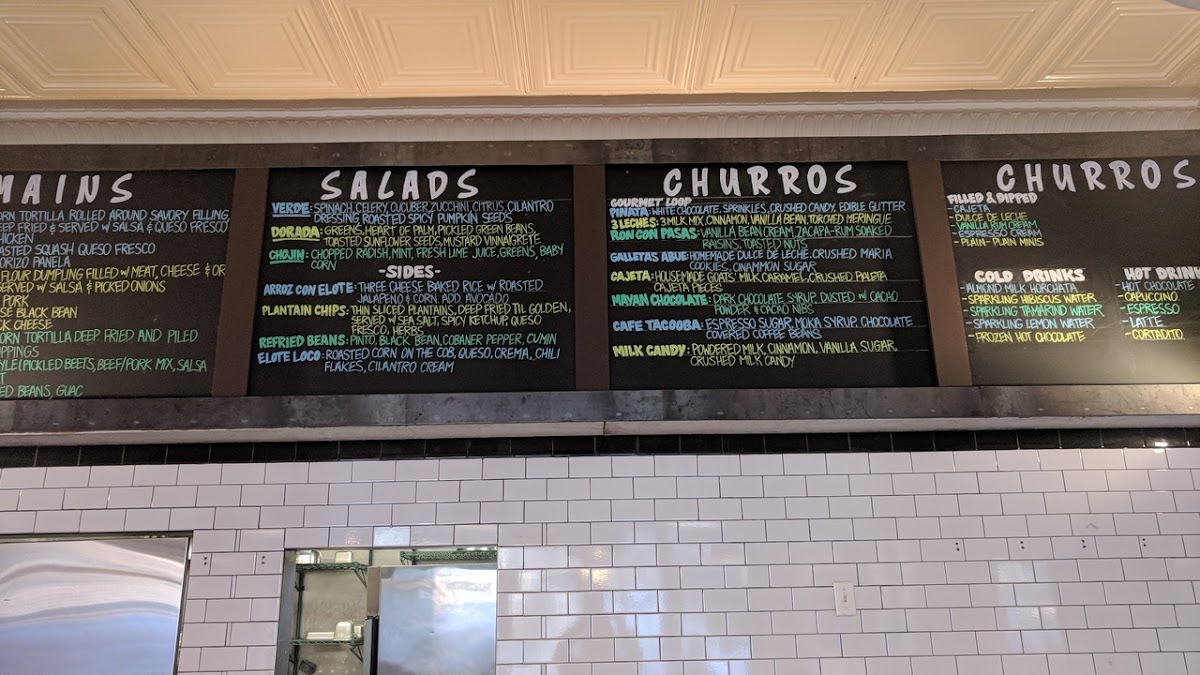 MAINS
CORN TORTILLA ROLLED AROUND SAVORY FILLING,
DEEP FRIED & SERVED W/ SALSA & QUESO FRESCO
CHICKEN
ROASTED SQUASH QUESO FRESCO
CHORIZO PANELA
FLOUR DUMPLING FILLED W/ MEAT, CHEESE & OR
SERVED W/ SALSA & PICKED ONIONS
PORK
BLACK BEAN
CHEESE
CORN TORTILLA DEEP FRIED AND PILED
(PICKLED BEETS, BEEF/PORK MIX, SALSA
BEANS, GUAC
SALADS
VERDE: SPINACH, CELERY, CUCUBER, ZUCCHINI, CITRUS, CILANTRO
DRESSING, ROASTED SPICY PUMPKIN SEEDS
DORADA: GREENS, HEART OF PALM, PICKLED GREEN BEANS,
TOASTED SUNFLOWER SEEDS, MUSTARD VINNAIGRETE
CHOJIN: CHOPPED RADISH, MINT, FRESH LIME JUICE, GREENS, BABY
CORN
-SIDES-
ARROZ CON ELOTE: THREE CHEESE BAKED RICE W/ ROASTED
JALAPENO & CORN, ADD AVOCADO
PLANTAIN CHIPS: THIN SLICED PLANTAINS, DEEP FRIED TIL GOLDEN,
SERVED W/ SEA SALT, SPICY KETCHUP, QUESO
FRESCO, HERBS
REFRIED BEANS: PINTO, BLACK BEAN, COBANER PEPPER, CUMIN
ELOTE LOCO: ROASTED CORN ON THE COB, QUESO, CREMA, CHILI
FLAKES, CILANTRO CREAM
CHURROS
GOURMET LOOP
PINATA: WHITE CHOCOLATE, SPRINKLES, CRUSHED CANDY, EDIBLE GLITTER
3 LECHES: 3 MILK MIX, CINNAMON, VANILLA BEAN, TORCHED MERINGUE
RON CON PASAS: VANILLA BEAN CREAM, ZACAPA-RUM SOAKED
RAISINS, TOASTED NUTS
GALLETAS ABUE: HOMEMADE DULCE DE LECHE, CRUSHED MARIA
COOKIES, CINAMMON SUGAR
CAJETA: HOUSEMADE GOATS' MILK CARAMEL, CRUSHED PALETA
CAJETA PIECES
MAYAN CHOCOLATE: DARK CHOCOLATE SYRUP, DUSTED W/ CACAO
POWDER & CACAO NIBS
CAFE TACOOBA: ESPRESSO SUGAR, MOKA SYRUP, CHOCOLATE
COVERED COFFEE BEANS
MILK CANDY: POWDERED MILK, CINNAMON, VANILLA SUGAR,
CRUSHED MILK CANDY
CHURROS
FILLED & DIPPED
- CAJETA
- DULCE DE LECHE
- VANILLA RUM CREAM
- ESPRESSO CREAM
- PLAIN - PLAIN MINIS
COLD DRINKS
- ALMOND MILK HORCHATA
- SPARKLING HIBISCUS WATER
- SPARKLING TAMARIND WATER
- SPARKLING LEMON WATER
- FROZEN HOT CHOCOLATE
HOT DRIN
- HOT CHOCOLATE
- CAPUCCINO
- ESPRESSO
- LATTE
- CORTADITO